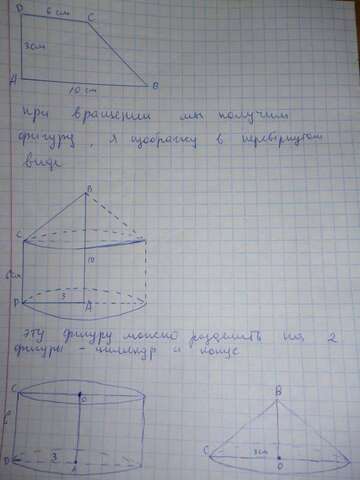 D 6 см C
3см
A 10 см B
при вращении мы получим
фигуру, я изображу в перевёрнутом
виде
B
C
10
6см
3
D A
эту фигуру можно разделить на 2
фигуры - цилиндр и конус
C O
6
3
D A
B
3см
C O